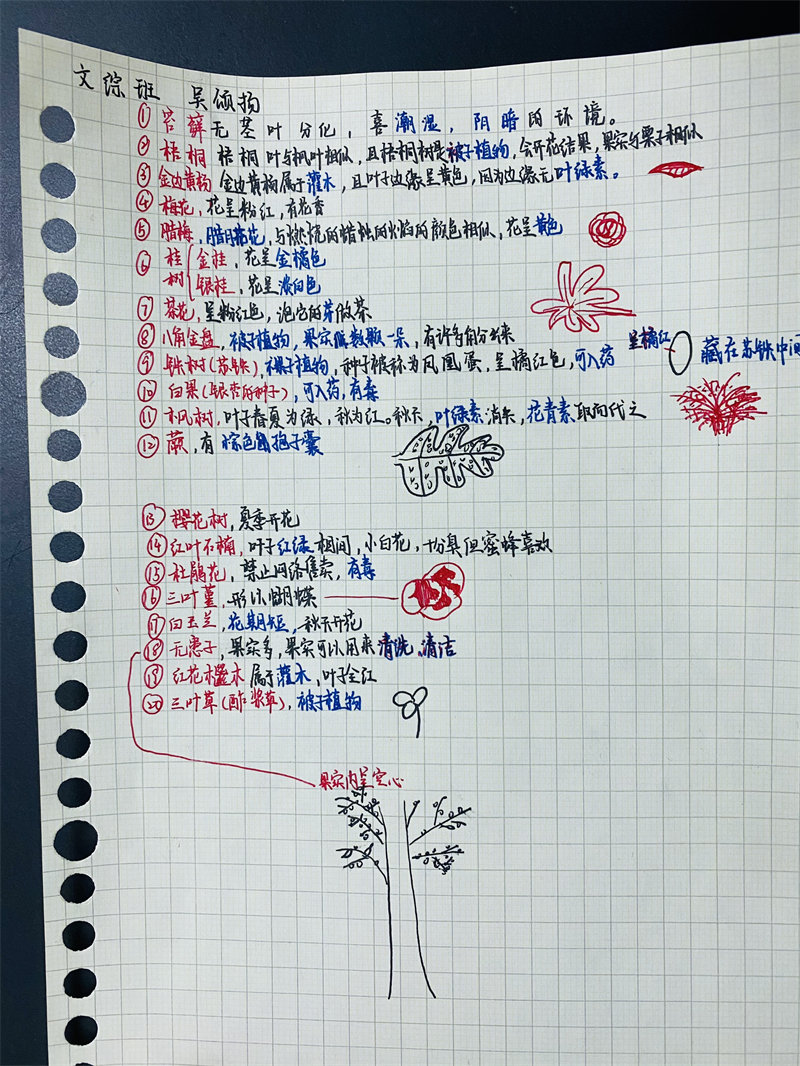 文综班 吴倾扬
① 苔藓无茎叶分化，喜潮湿，阴暗的环境。
② 梧桐 梧桐叶与枫叶相似，且梧桐树是被子植物，会开花结果，果实与栗子相似
③ 金边黄杨 金边黄杨属于灌木，且叶子边缘呈黄色，因为边缘无叶绿素。
④ 梅花，花呈粉红，有花香
⑤ 腊梅，腊月开花，与燃烧的蜡烛的火焰的颜色相似，花呈黄色
⑥ 桂树 金桂，花呈金橘色
银桂，花呈淡白色
⑦ 茶花，呈粉红色，泡它的芽做茶
⑧ 八角金盘，被子植物，果实成数颗一朵，有许多角分出来
⑨ 铁树(苏铁)，裸子植物，种子被称为凤凰蛋，呈橘红色，可入药
呈橘红
藏在苏铁中间
⑩ 白果(银杏的种子)，可入药，有毒
⑪ 枫树，叶子春夏为绿，秋为红。秋天，叶绿素消失，花青素取而代之
⑫ 蕨，有棕色孢子囊
⑬ 樱花树，夏季开花
⑭ 红叶石楠，叶子红绿相间，小白花，十分臭但蜜蜂喜欢
⑮ 杜鹃花，禁止网络售卖，有毒
⑯ 三叶堇，形似蝴蝶
⑰ 白玉兰，花期短，秋天开花
⑱ 无患子，果实多，果实可以用来清洗。清洁
⑲ 红花檵木属于灌木，叶子全红
⑳ 三叶草(酢浆草)，被子植物
果实内呈空心